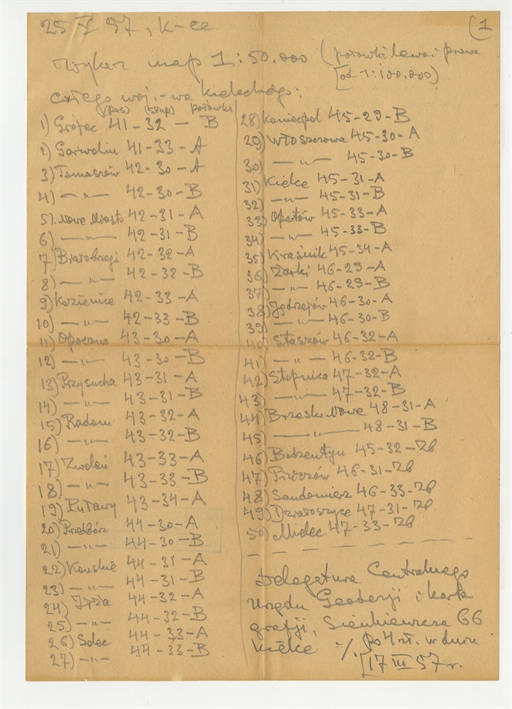 25 V 57, K-ce
(1
Wykaz map 1:50.000 (połówki lewa i prawa
[od 1:100.000)
całego woj.-wa kieleckiego:
(pas) (słup) połówki
1) Grójec 41-32-B
2) Garwolin 41-33-A
3) Tomaszów 42-30-A
4) —„— 42-30-B
5) Nowe Miasto 42-31-A
6) —„— 42-31-B
7) Białobrzegi 42-32-A
8) —„— 42-32-B
9) Kozienice 42-33-A
10) —„— 42-33-B
11) Opoczno 43-30-A
12) —„— 43-30-B
13) Przysucha 43-31-A
14) —„— 43-31-B
15) Radom 43-32-A
16) —„— 43-32-B
17) Zwoleń 43-33-A
18) —„— 43-33-B
19) Puławy 43-34-A
20) Przedbórz 44-30-A
21) —„— 44-30-B
22) Końskie 44-31-A
23) —„— 44-31-B
24) Iłża 44-32-A
25) —„— 44-32-B
26) Solec 44-33-A
27) —„— 44-33-B
28) Koniecpol 45-29-B
29) Włoszczowa 45-30-A
30) —„— 45-30-B
31) Kielce 45-31-A
32) —„— 45-31-B
33) Opatów 45-33-A
34) —„— 45-33-B
35) Kraśnik 45-34-A
36) Żarki 46-29-A
37) —„— 46-29-B
38) Jędrzejów 46-30-A
39) —„— 46-30-B
40) Staszów 46-32-A
41) —„— 46-32-B
42) Stopnica 47-32-A
43) —„— 47-32-B
44) Brzesko Nowe 48-31-A
45) —„— 48-31-B
46) Bodzentyn 45-32-
47) Pińczów 46-31-
48) Sandomierz 46-33-
49) Działoszyce 47-31-
50) Mielec 47-33-
Delegatura Centralnego
Urzędu Geodezji i karto
grafji, Sienkiewicza 66
Kielce % po 4 zł. w dniu
[17 III 57 r.